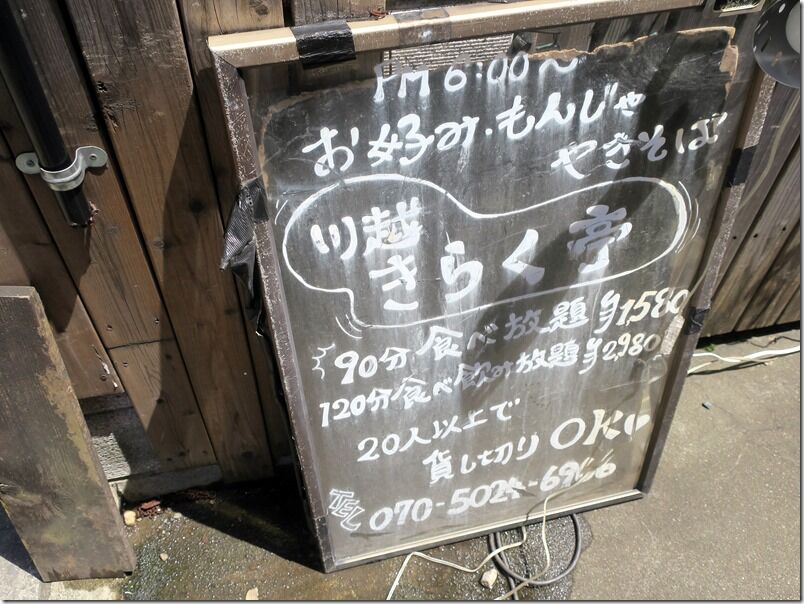 PM 6:00〜
お好み・もんじゃ
やきそば
川越
きらく亭
90分食べ放題 ¥1,580
120分食べ飲み放題 ¥2,980
20人以上で
貸し切りOK。
TEL 070-5024-69